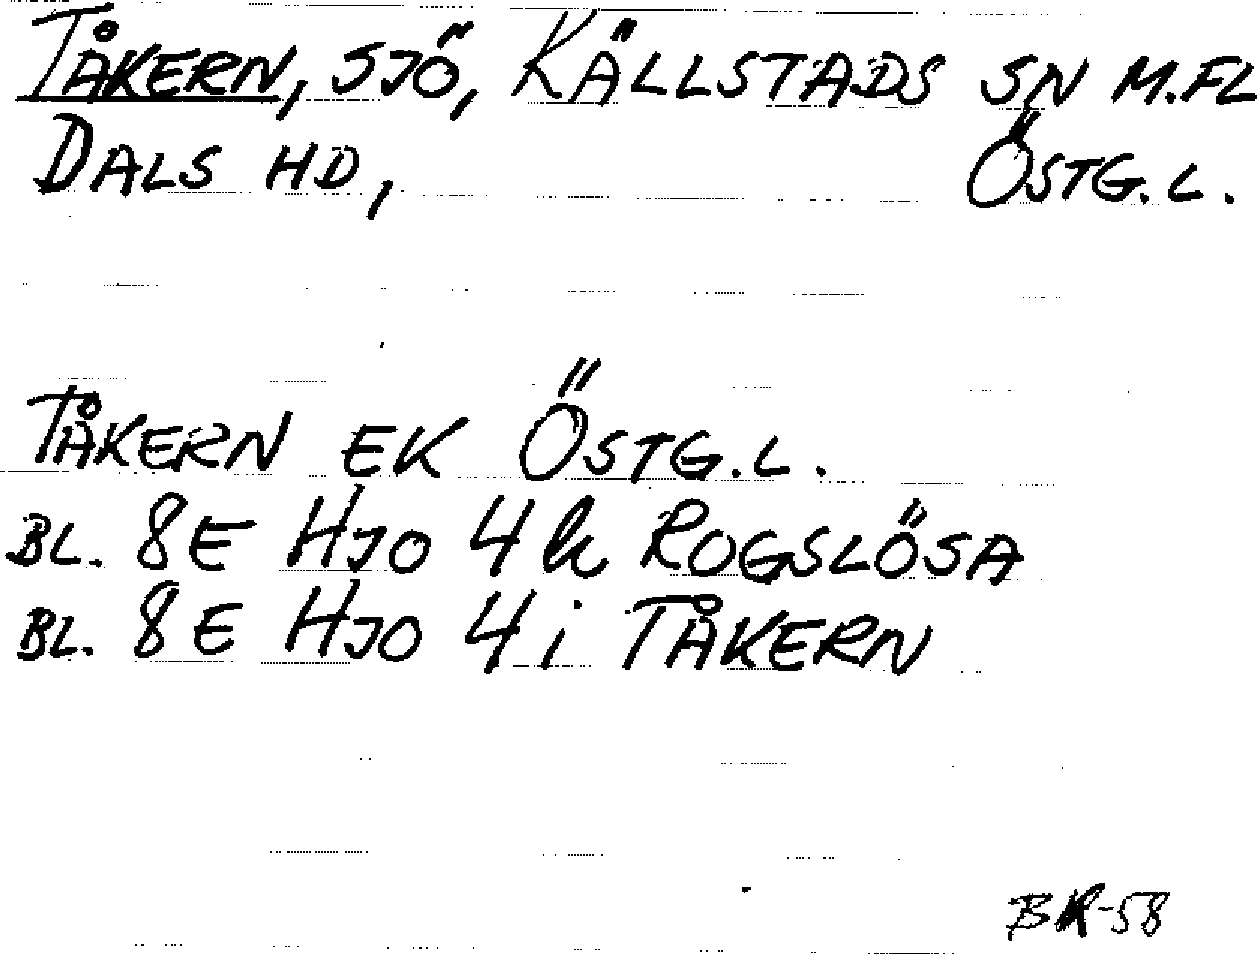 TÅKERN, SJÖ, KÄLLSTADS SN M.FL
DALS HD, ÖSTG.L.
TÅKERN EK ÖSTG.L.
BL. 8E HJO 4k ROGSLÖSA
BL. 8E HJO 4i TÅKERN
BR-58